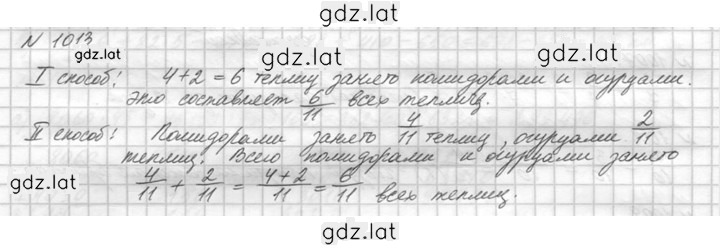 gdz.lat
N 1013
gdz.lat
gdz.lat
I способ: 4+2=6 теплиц занято помидорами и огурцами.
Это составляет 6/11 всех теплиц.
II способ: Помидорами занято 4/11 теплиц, огурцами 2/11
теплиц. Всего помидорами и огурцами занято
gdz.lat
4/11 + 2/11 = 4+2/11 = 6/11 всех теплиц.
gdz.lat
gdz.lat